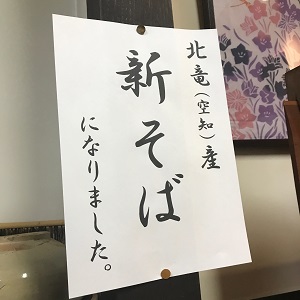 北竜(空知)産
新そば
になりました。